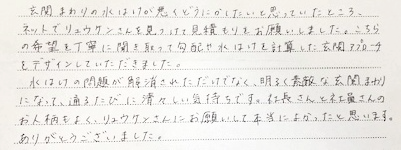 玄関まわりの水はけが悪くどうにかしたいと思っていたところ、
ネットでリュウケンさんを見つけて見積もりをお願いしました。こちら
の希望を丁寧に聞き取って勾配や水はけを計算した玄関アプローチ
をデザインしていただきました。
水はけの問題が解消されただけでなく、明るく素敵な玄関まわり
になって、通るたびに清々しい気持ちです。社長さんと社員さんの
お人柄もよく、リュウケンさんにお願いして本当によかったと思います。
ありがとうございました。